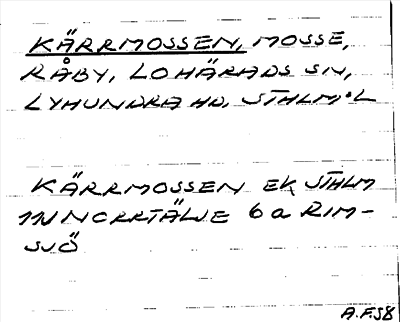 KÄRRMOSSEN, MOSSE,
RÅBY, LOHÄRADS SN,
LYHUNDRA HD, STHLM.L
KÄRRMOSSEN EK STHLM
11I NORRTÄLJE 6a RIM-
SJÖ
A.F.58